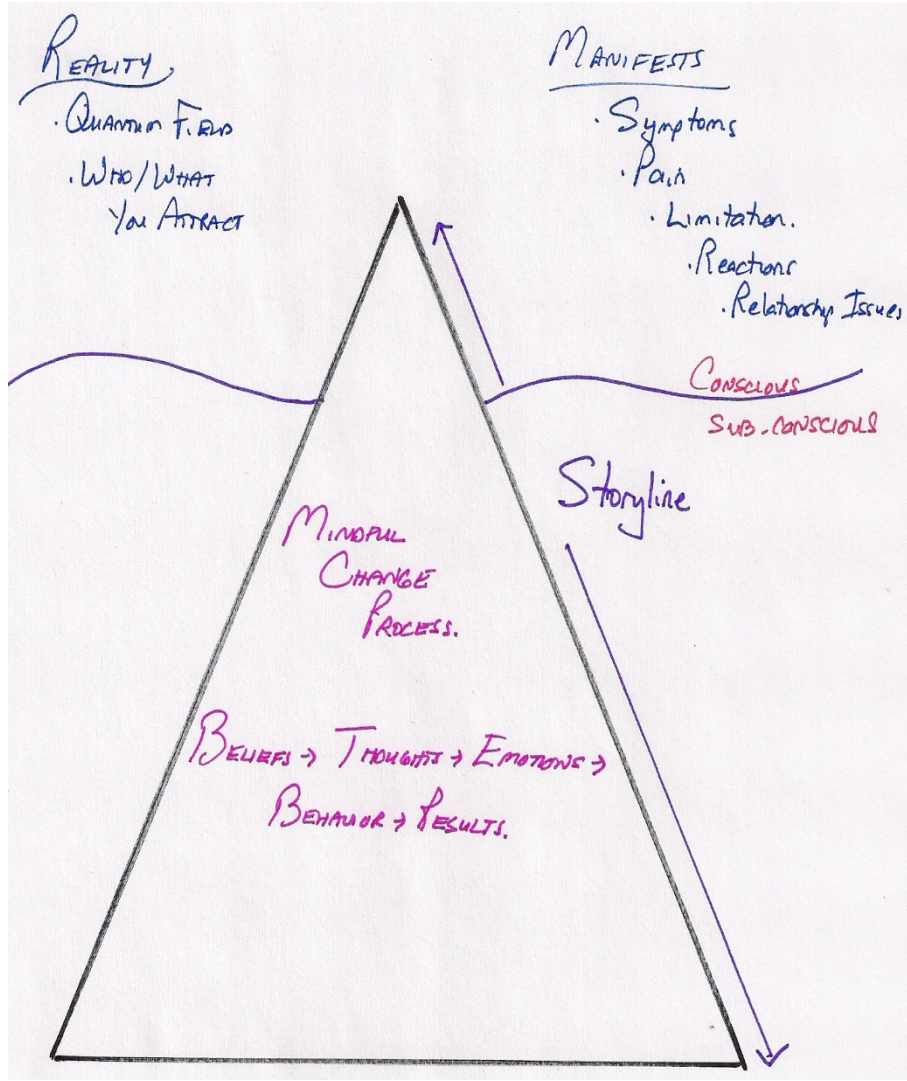 REALITY
· QUANTUM FIELD
· WHO/WHAT
YOU ATTRACT
MANIFESTS
· Symptoms
· Pain
· Limitation.
· Reactions
· Relationship Issues
CONSCIOUS
SUB-CONSCIOUS
Storyline
MINDFUL
CHANGE
PROCESS.
BELIEFS → THOUGHTS → EMOTIONS →
BEHAVIOR → RESULTS.